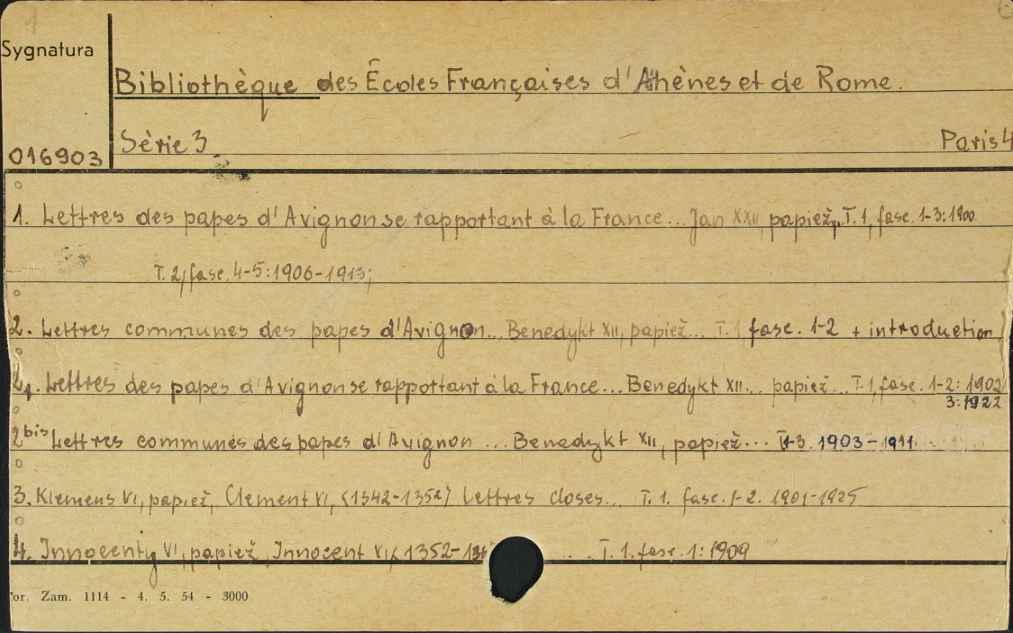 Sygnatura
Bibliothèque des Écoles Françaises d'Athènes et de Rome.
016903
Série 3
Paris 4
1. Lettres des papes d'Avignon se rapportant à la France... Jan XXII, papież, T. 1, fasc. 1-3: 1900
T. 2, fasc. 4-5: 1906-1913;
2. Lettres communes des papes d'Avignon... Benedykt XII, papież... T. 1 fasc. 1-2 + introduction
2. Lettres des papes d'Avignon se rapportant à la France... Benedykt XII... papież... T. 1, fasc. 1-2: 1902
3: 1922
2bis Lettres communes des papes d'Avignon ... Benedykt XII, papież... T. 1-3. 1903-1911
3. Klemens VI, papież, Clement VI, (1342-1352) Lettres closes... T. 1. fasc. 1-2. 1901-1925
4. Innocenty VI, papież, Innocent VI, (1352- ... T. 1. fasc. 1: 1909
or. Zam. 1114 - 4. 5. 54 - 3000